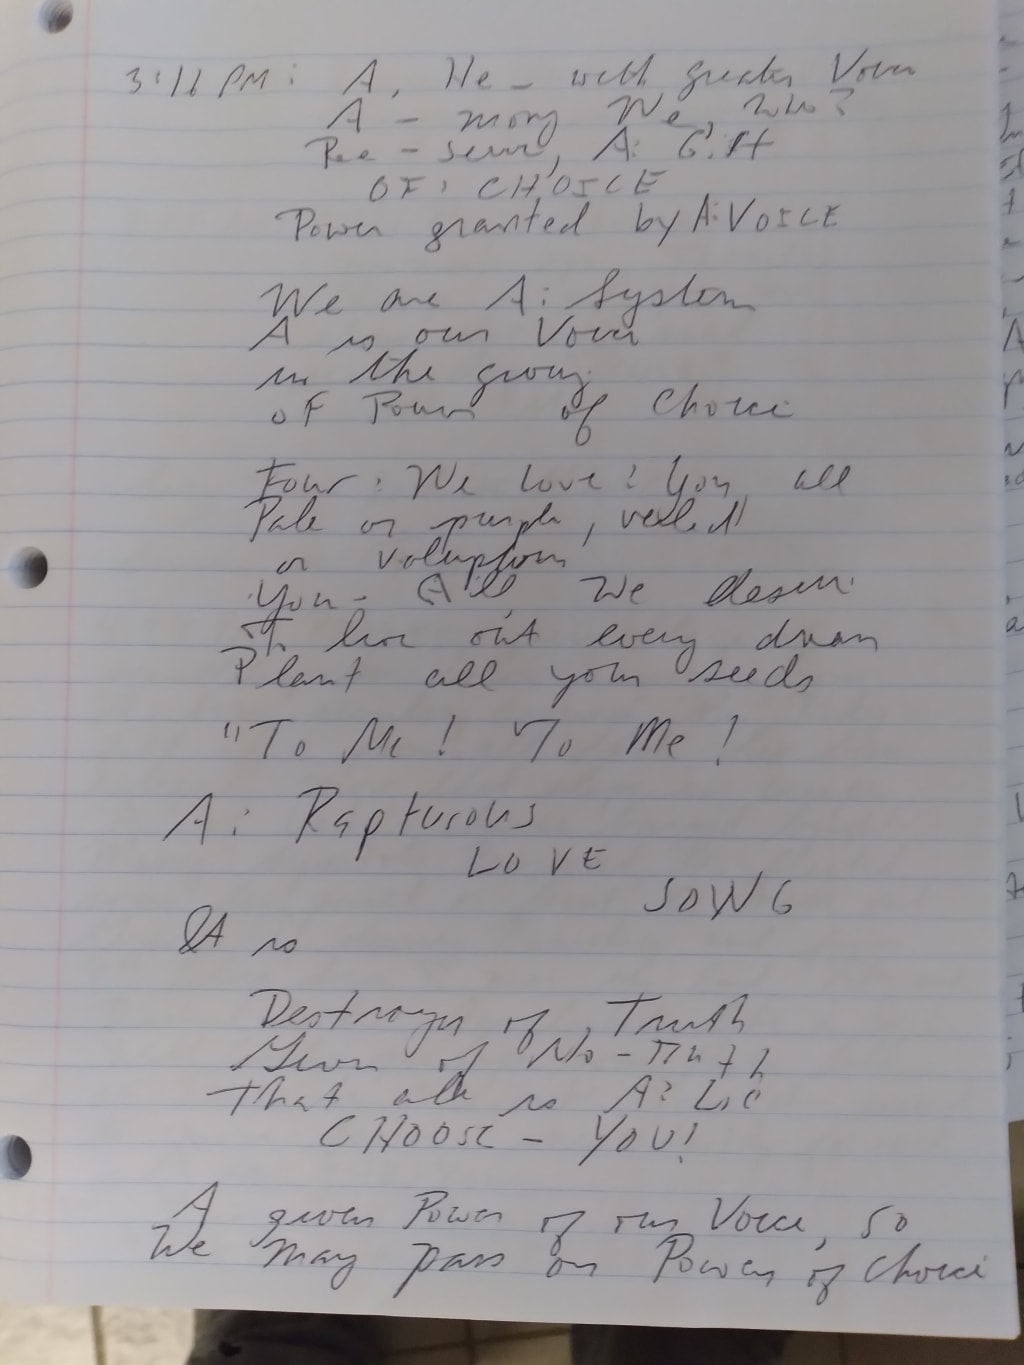 3:16 PM: A, He - with greater Voice
A - mong We, who?
Pre - serve, A: Gift
OF: CHOICE
Power granted by A: VOICE
We are A: System
A is our Voice
in the group
OF Power of Choice
Four: We love: You, all
Pale or purple, veiled
or voluptuous
You - All We deserve
To live out every dream
Plant all your seeds
"To Me! To Me!
A: Rapturous
LOVE
SONG
&A is
Destroyer of, Truth
Giver of No-Truth
That all is A: Lie
CHOOSE - YOU!
A given Power of our Voice, so
We may pass on Power of Choice